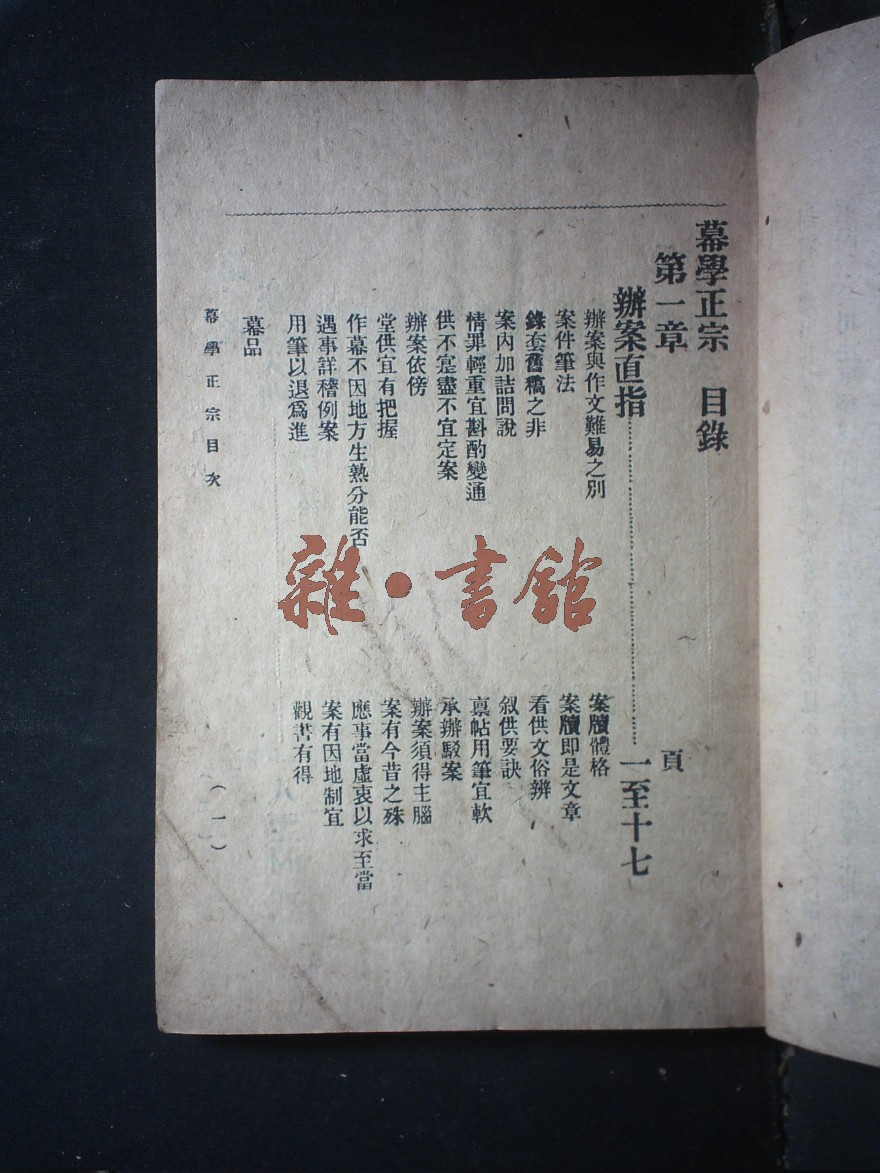 幕學正宗　目錄
第一章
頁
辦案直指…………一至十七
辦案與作文難易之別
案牘體格
案件筆法
案牘即是文章
錄套舊稿之非
看供文俗辨
案內加詰問說
叙供要訣
情罪輕重宜斟酌變通
稟帖用筆宜軟
供不寔盡不宜定案
承辦駁案
辦案依傍
辦案須得主腦
堂供宜有把握
案有今昔之殊
作幕不因地方生熟分能否
應事當虛衷以求至當
遇事詳稽例案
案有因地制宜
用筆以退爲進
觀書有得
幕品
幕學正宗目次
（一）
雜·書館